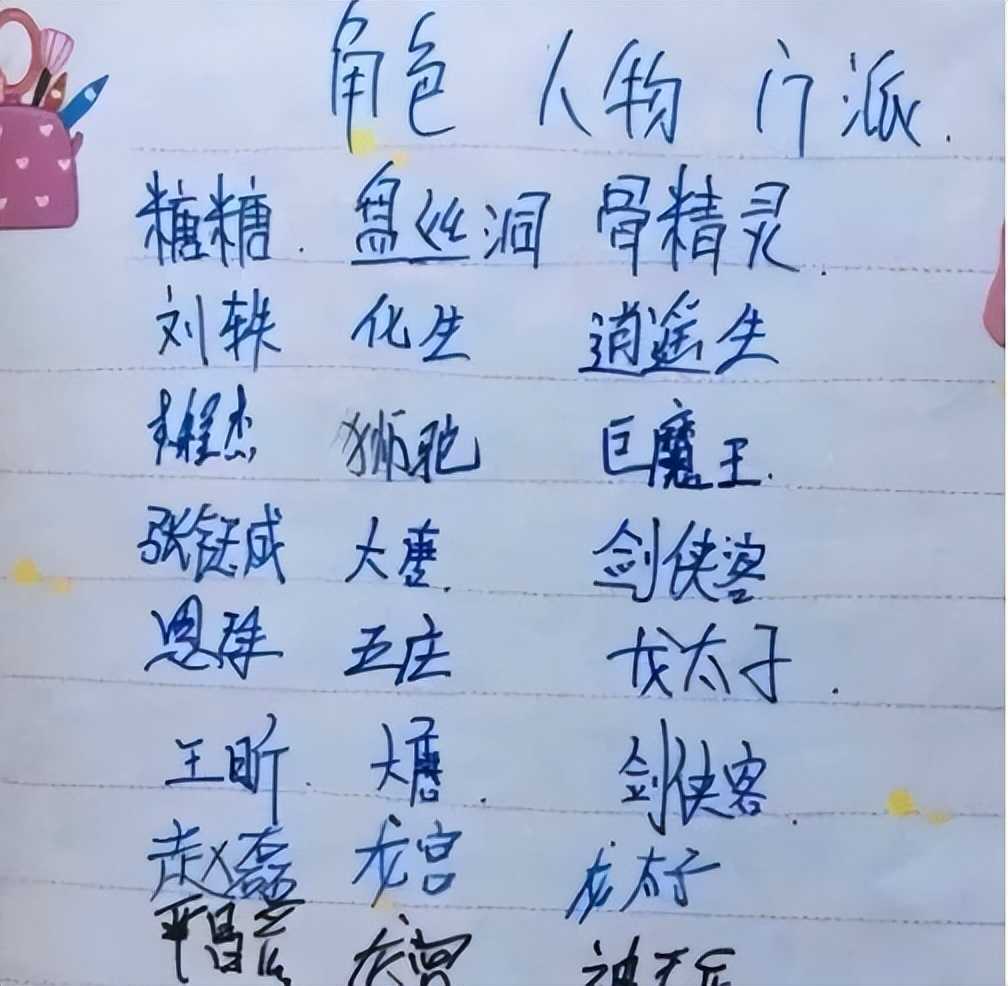 角色 人物 门派.
糖糖. 盘丝洞 骨精灵.
刘轶 化生 逍遥生
杰 狮驼 巨魔王.
张钰成 大唐. 剑侠客
恩琫 五庄 龙太子.
王昕. 大唐. 剑侠客.
赵磊 龙宫 龙太子
龙宫